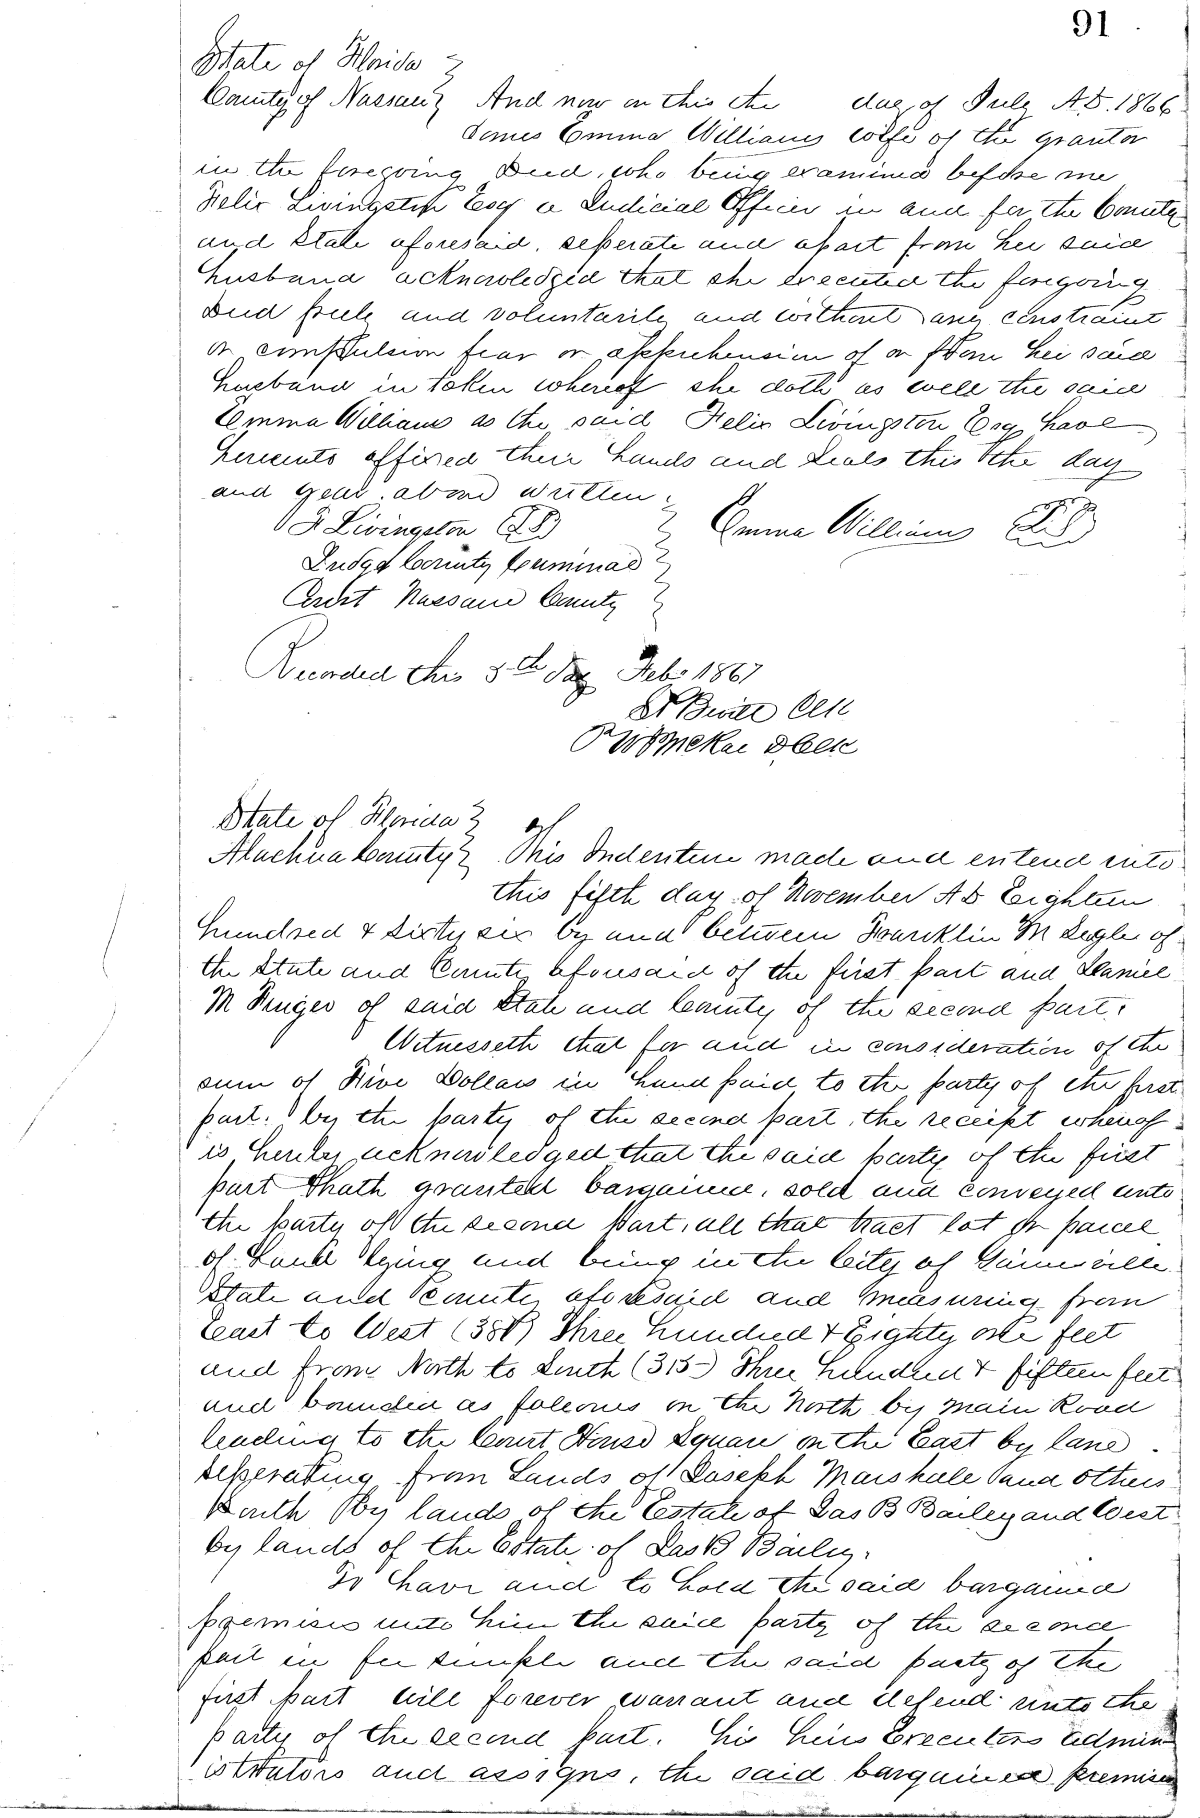 91
State of Florida
County of Nassau And now on this the day of July A.D. 1866
comes Emma Williams wife of the grantor
in the foregoing Deed, who being examined before me
Felix Livingston Esq a Judicial Officer in and for the County
and State aforesaid, seperate and apart from her said
husband acknowledged that she executed the foregoing
Deed freely and voluntarily and without any constraint
or compulsion fear or apprehension of or from her said
husband in token whereof she doth as well the said
Emma Williams as the said Felix Livingston Esq have
hereunto affixed their hands and Seals this the day
and year above written
F. Livingston (LS) Emma Williams (LS)
Judge County Criminal
Court Nassau County
Recorded this 5th day Feb 1867
Clk
D Clk
State of Florida
Alachua County This Indenture made and entered into
this fifth day of November AD Eighteen
hundred & Sixty six by and between Franklin M of
the State and County aforesaid of the first part and Daniel
M of said State and County of the second part.
Witnesseth that for and in consideration of the
sum of Five Dollars in hand paid to the party of the first
part. by the party of the second part, the receipt whereof
is hereby acknowledged that the said party of the first
part hath granted bargained, sold and conveyed unto
the party of the second part, all that tract lot or parcel
of Land lying and being in the City of Gainesville
State and County aforesaid and measuring from
East to West (381) Three hundred & Eighty one feet
and from North to South (315) Three hundred & fifteen feet
and bounded as follows on the North by Main Road
leading to the Court House Square on the East by lane
seperating from Lands of Joseph Marshall and others
South by lands of the Estate of Jas B Bailey and West
by lands of the Estate of Jas B Bailey.
To have and to hold the said bargained
premises unto him the said party of the second
part in fee simple and the said party of the
first part will forever warrant and defend unto the
party of the second part. his heirs Executors Admin
istrators and assigns, the said bargained premises